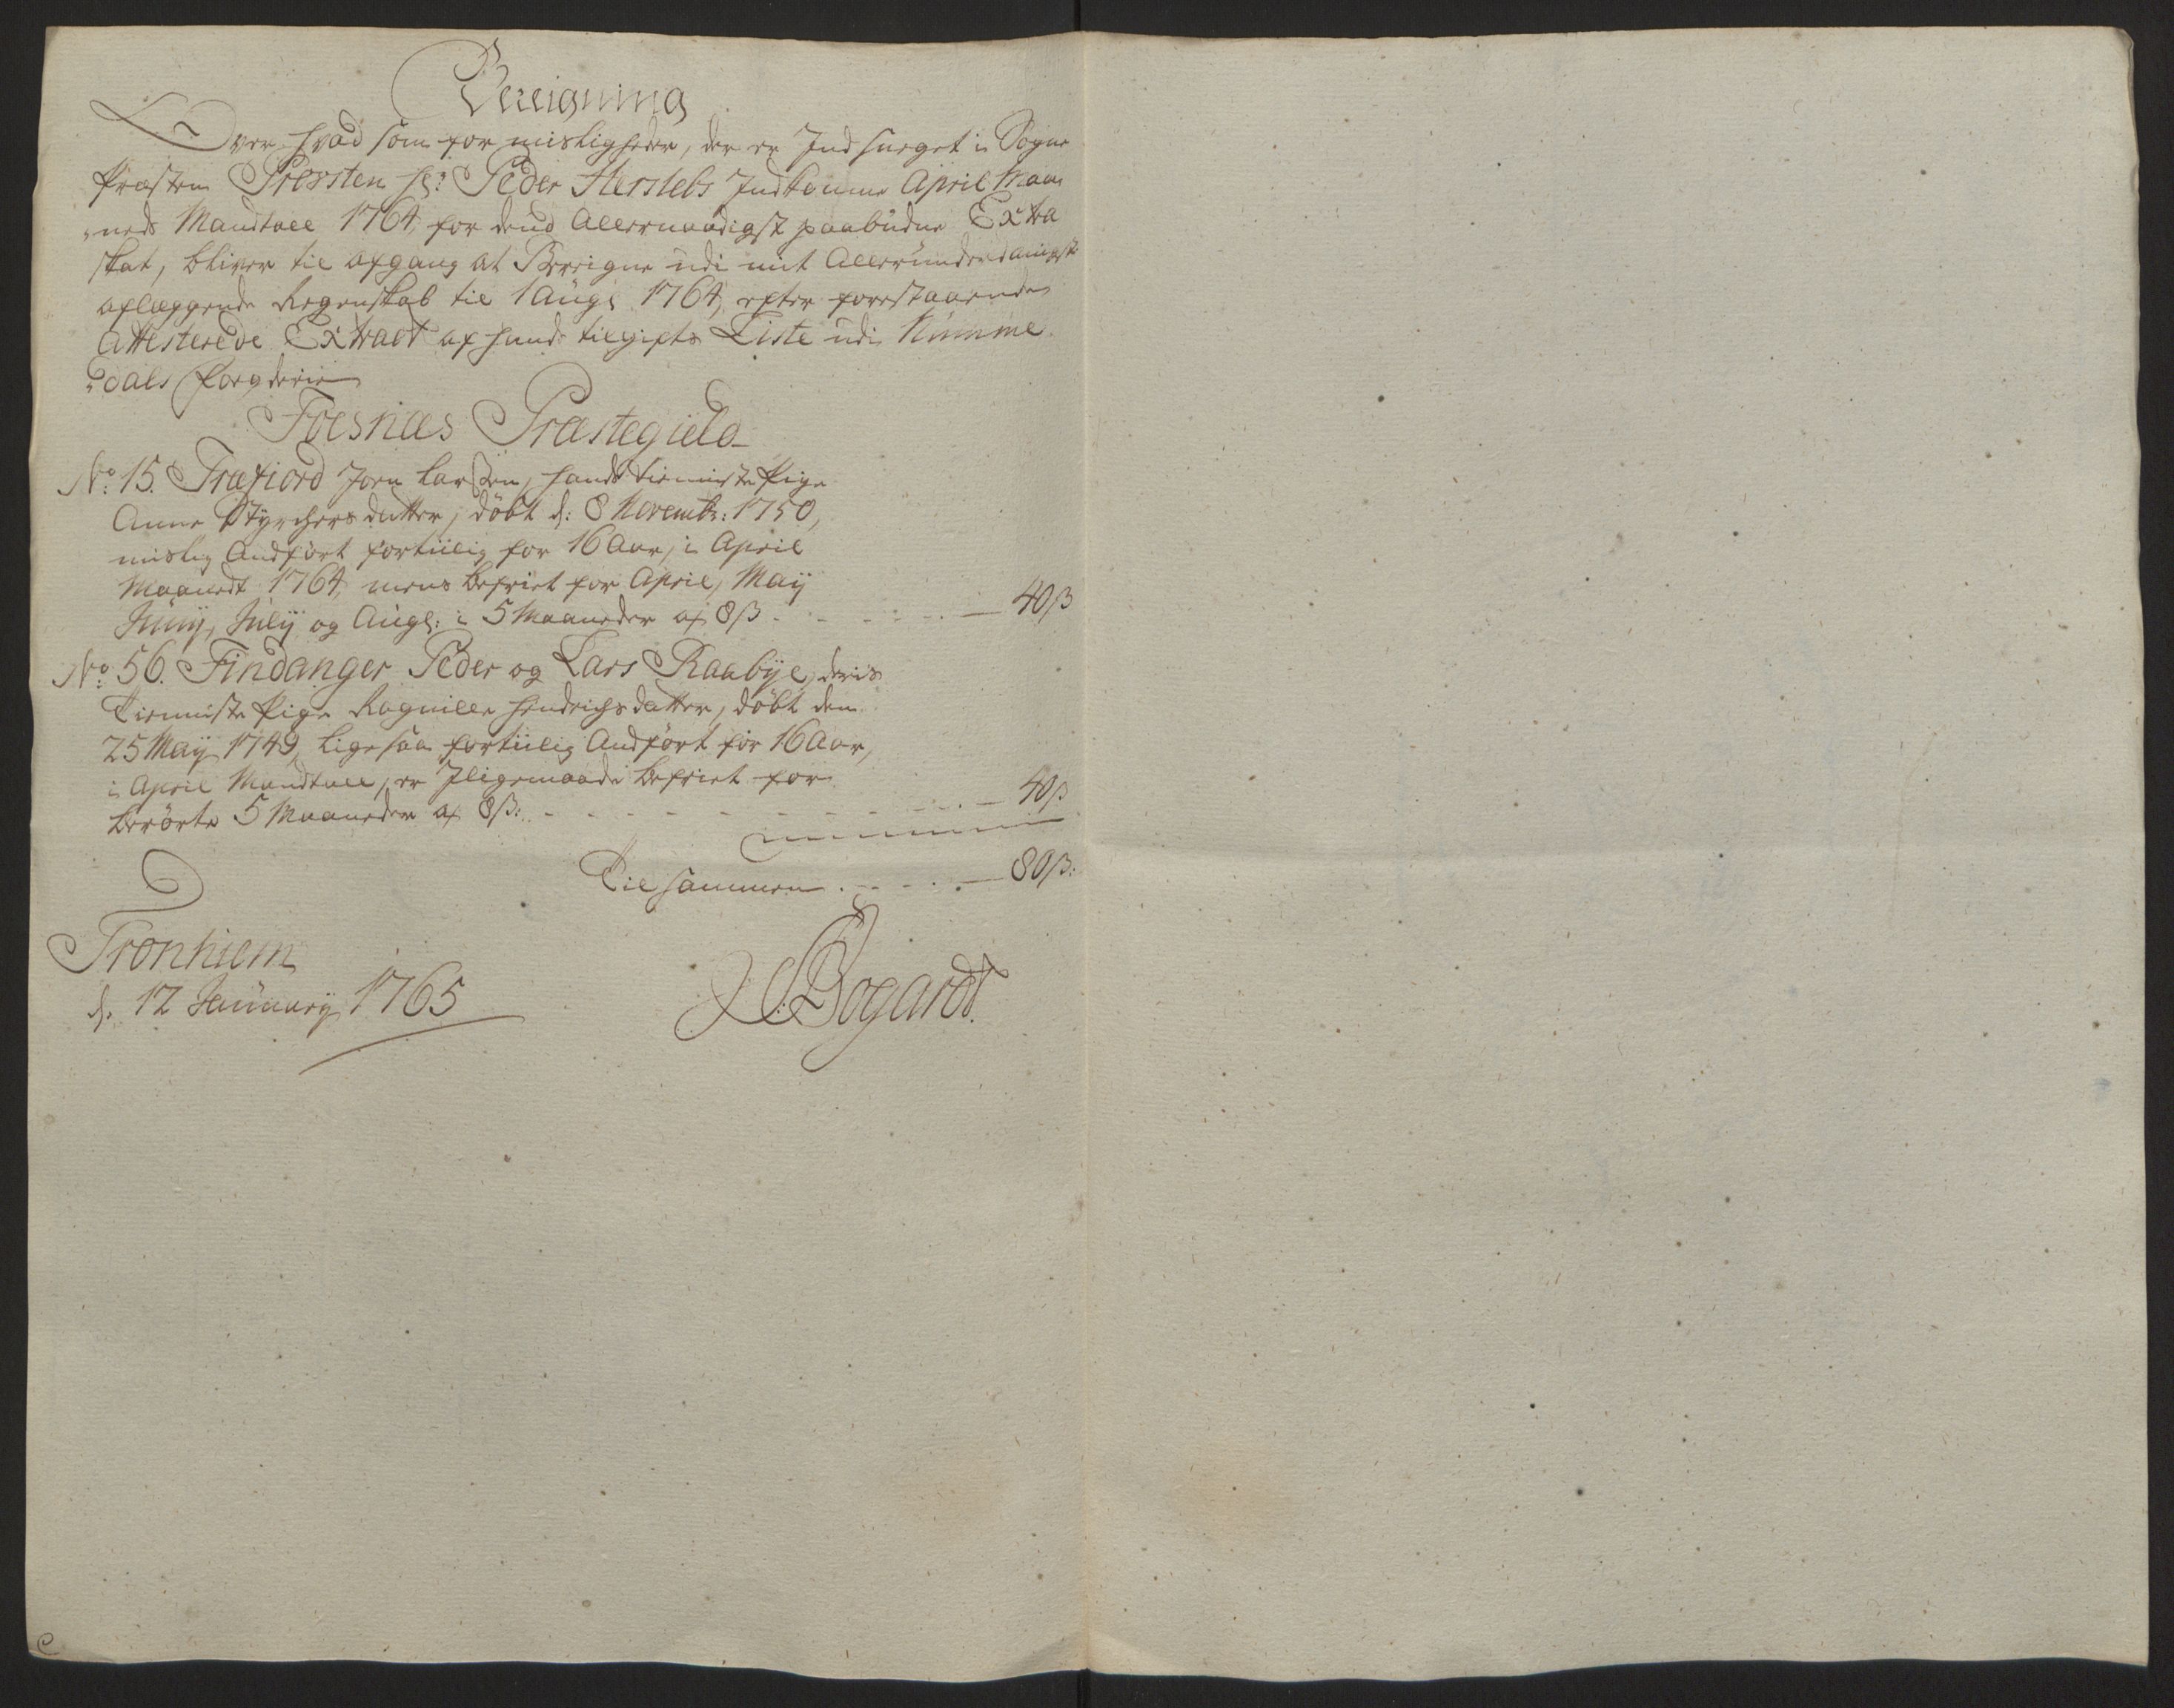 Bereigning
Over hvad som for misligheder, der er Indsneget i Sogne
Præsten Præsten Hr: Peder Herslebs Indkomne April Maa
„neds Mandtall 1764, for dend Allernaadigst paabudne Extra
skat, bliver til afgang at Bereigne udi mit Allerunderdanigst
aflæggende Regenskab til 1 Augs 1764, efter forestaaende
Attesterede Extract af hands tilgifts Liste udi Numme
„dals fogderie
Foesnæs Præstegield
No: 15. Træfiord Joen Larsen, hands tienniste Pige
Anne Styrchersdatter, döbt d: 8 Novembr: 1750,
mislig Andfört fortiilig for 16 Aar, i April
Maanedt 1764, mens befriet for April, Maij
Junij, Julij og Augs: i 5 Maaneder af 8 ß - - - - - 40 ß
No: 56. Findanger Peder og Lars Raabye, deris
Tienniste Pige Ragnille Hendrichsdatter, döbt den
25 Maij 1749, ligesaa fortiilig Andfört för 16 Aar,
i April Mandtall, er Iligemaade befriet for
berörte 5 Maaneder af 8 ß: - - - - - - - - 40 ß
Tilsammen . - - . - 80 ß:
Tronhiem
d. 12 Januarij 1765
Bogardt